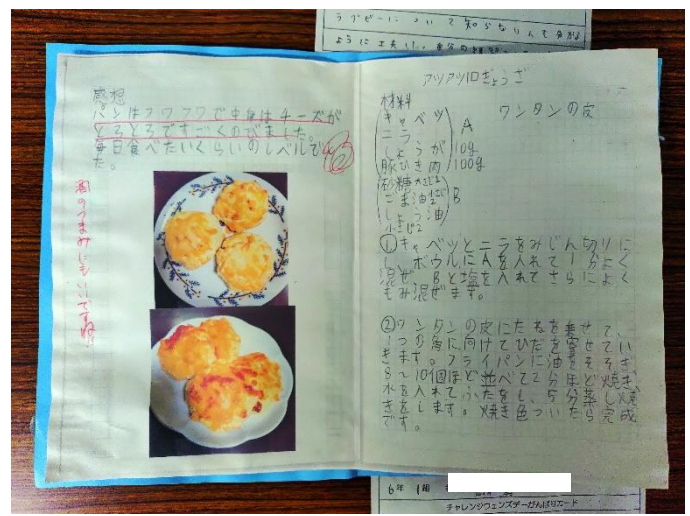 ラグビーについて知らない人も多分
ように工夫し
感想
パンはフワフワで中身はチーズが
とろとろですごくのびました。
毎日食べたいくらいのレベルでし
た。
酒のつまみにもいいですね!
アツアツ10ぎょうざ
材料
キャベツ
ニラ
しょうが 10g
豚ひき肉 100g
A
ワンタンの皮
砂糖
ごま油
しょう油
小さじ2
B
①キャベツとニラをみじん切りに
し、ボウルにAを入れて1分よく
混ぜ、Bと塩を入れてさらによく
もみ混ぜます。
②ワンタンの皮にたねを乗せて、
1つの角に向けてひだを寄せてい
きます。フライパンに油をそそぎ、
8〜10個ほど並べて2分ほど焼き、
水を入れてふたをし、5分蒸し焼
きをします。焼き色ついたら完成
です。
6年 1組
チャレンジウェンズデーがんばりカード